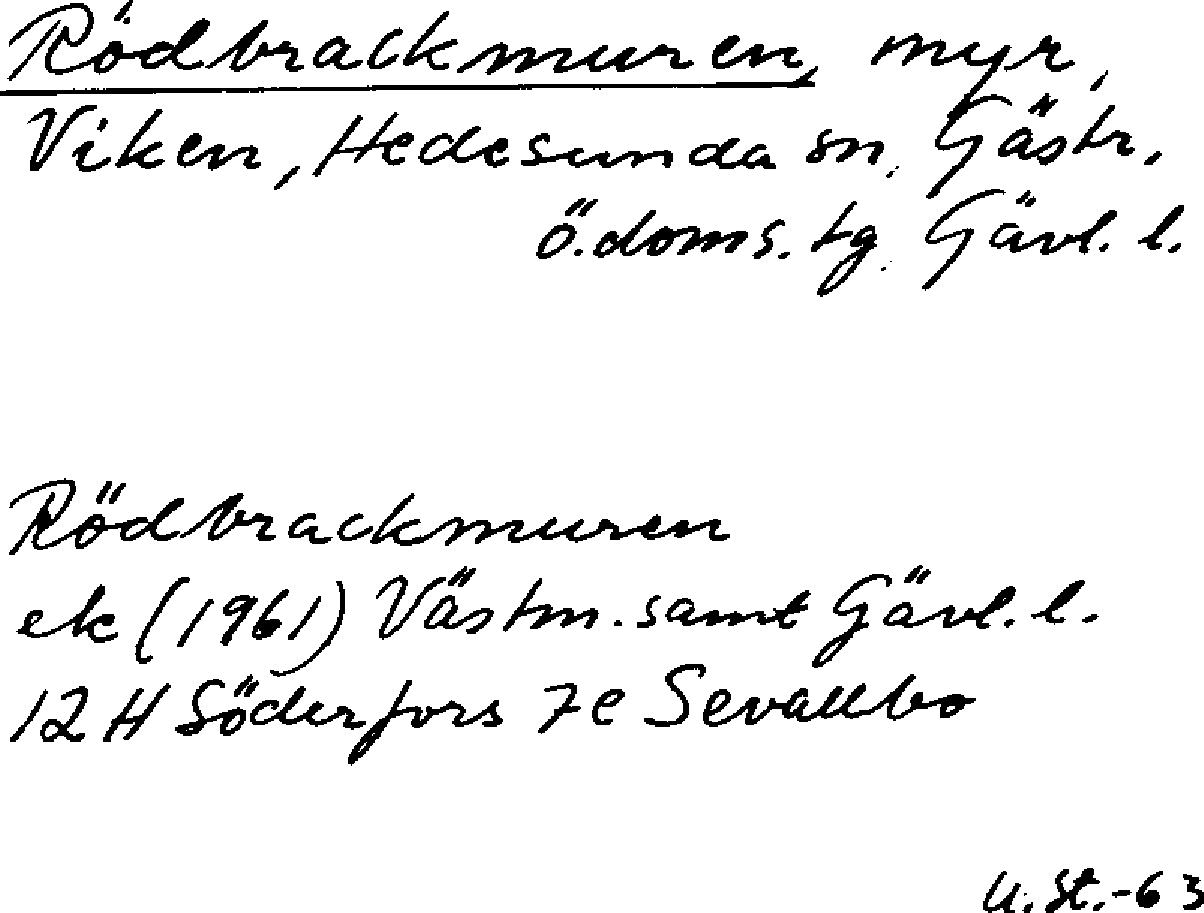 Rödbrackmuren, myr,
Viken, Hedesunda sn, Gästr.
ö.doms.tg. Gävl. l.
Rödbrackmuren
ek (1961) Västm. samt Gävl. l.
12 H Söderfors 7e Sevallbo
U. St. -63